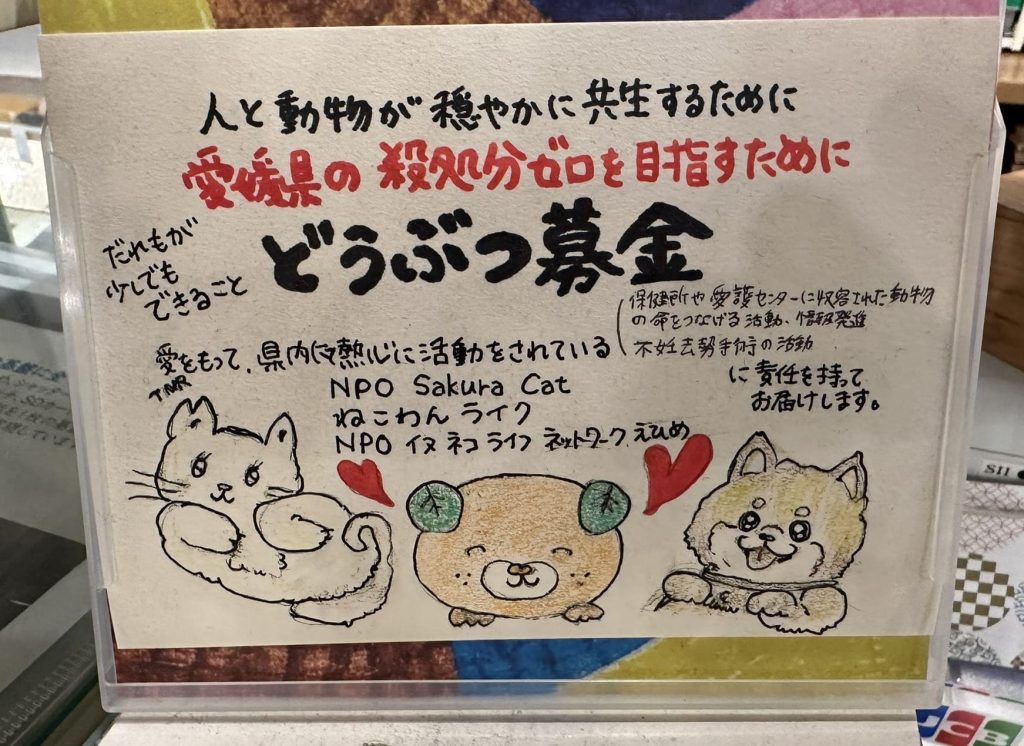 人と動物が穏やかに共生するために
愛媛県の殺処分ゼロを目指すために
だれもが
少しでも
できること
どうぶつ募金
保健所や愛護センターに収容された動物
の命をつなげる活動、情報発進
不妊去勢手術の活動
愛をもって、県内で熱心に活動をされている
TNR
NPO Sakura Cat
ねこわんライク
NPO イヌ ネコ ライフ ネットワーク えひめ
に責任を持って
お届けします。
S11
JCB